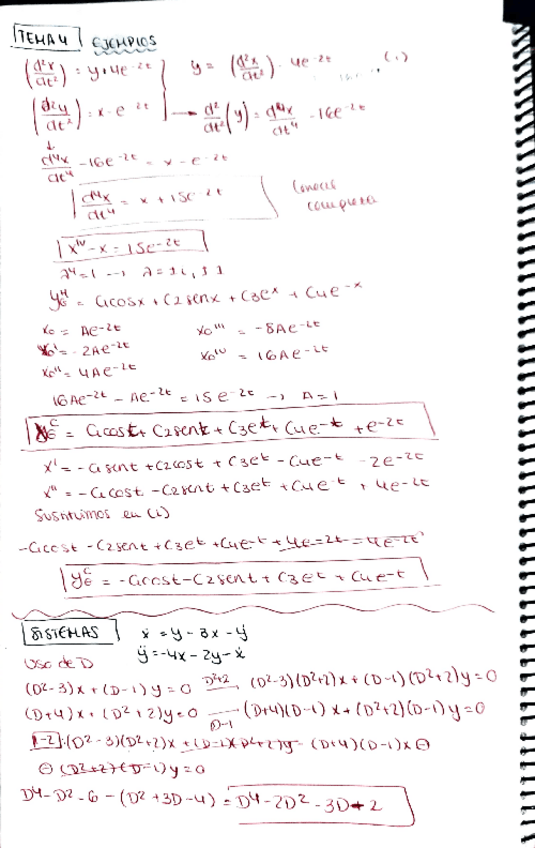 TEMA 4 EJEMPLOS
(d²x/dt²) = y+4e^-2t } y = (d²x/dt²) - 4e^-2t (1)
(d²y/dt²) = x - e^-2t → d²/dt² (y) = d⁴x/dt⁴ - 16e^-2t
↓
d⁴x/dt⁴ - 16e^-2t = x - e^-2t
d⁴x/dt⁴ = x + 15e^-2t
x^IV - x = 15e^-2t
λ⁴=1 → λ=±i, ±1
y_G^H = C1cosx + C2senx + C3e^x + C4e^-x
x₀ = Ae^-2t x₀''' = -8Ae^-2t
x₀' = -2Ae^-2t x₀^IV = 16Ae^-2t
x₀'' = 4Ae^-2t
16Ae^-2t - Ae^-2t = 15e^-2t → A=1
x_G^C = C1cost + C2sent + C3e^t + C4e^-t + e^-2t
x' = -C1sent + C2cost + C3e^t - C4e^-t - 2e^-2t
x'' = -C1cost - C2sent + C3e^t + C4e^-t + 4e^-2t
Sustituimos en (1)
-C1cost - C2sent + C3e^t + C4e^-t + 4e^-2t - 4e^-2t
y_G^C = -C1cost - C2sent + C3e^t + C4e^-t
SISTEMAS ẍ = y - 3x - ẏ
Uso de D ÿ = -4x - 2y - ẋ
(D²-3)x + (D-1)y = 0 D²+2 (D²-3)(D²+2)x + (D-1)(D²+2)y = 0
(D+4)x + (D²+2)y = 0 D-1 (D+4)(D-1)x + (D²+2)(D-1)y = 0
1-2: (D²-3)(D²+2)x + (D-1)(D²+2)y - (D+4)(D-1)x ⊖
⊖ (D²+2)(D-1)y = 0
D⁴-D²-6 - (D²+3D-4) = D⁴-2D²-3D-2